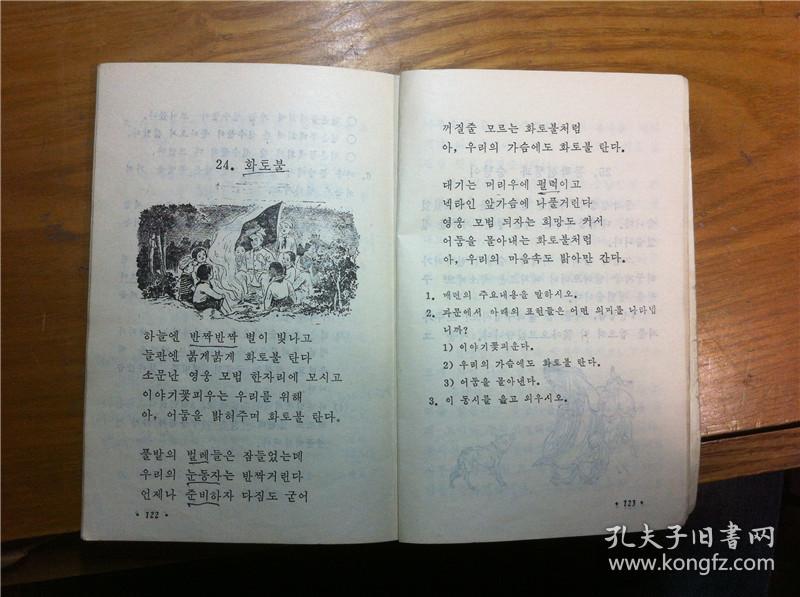 24. 화토불
하늘엔 반짝반짝 별이 빛나고
들판엔 붉게붉게 화토불 탄다
소문난 영웅 모범 한자리에 모시고
이야기꽃피우는 우리를 위해
아, 어둠을 밝혀주며 화토불 탄다.
풀밭의 벌레들은 잠들었는데
우리의 눈동자는 반짝거린다
언제나 준비하자 다짐도 굳어
• 122 •
꺼질줄 모르는 화토불처럼
아, 우리의 가슴에도 화토불 탄다.
대기는 머리우에 펄럭이고
넥타인 앞가슴에 나풀거린다
영웅 모범 되자는 희망도 커서
어둠을 몰아내는 화토불처럼
아, 우리의 마음속도 밝아만 간다.
1. 매련의 주요내용을 말하시오.
2. 과문에서 아래의 표현들은 어떤 의미를 나타냅
니까?
1) 이야기꽃피운다.
2) 우리의 가슴에도 화토불 탄다.
3) 어둠을 몰아낸다.
3. 이 동시를 읊고 외우시오.
• 123 •
孔夫子旧书网
www.kongfz.com